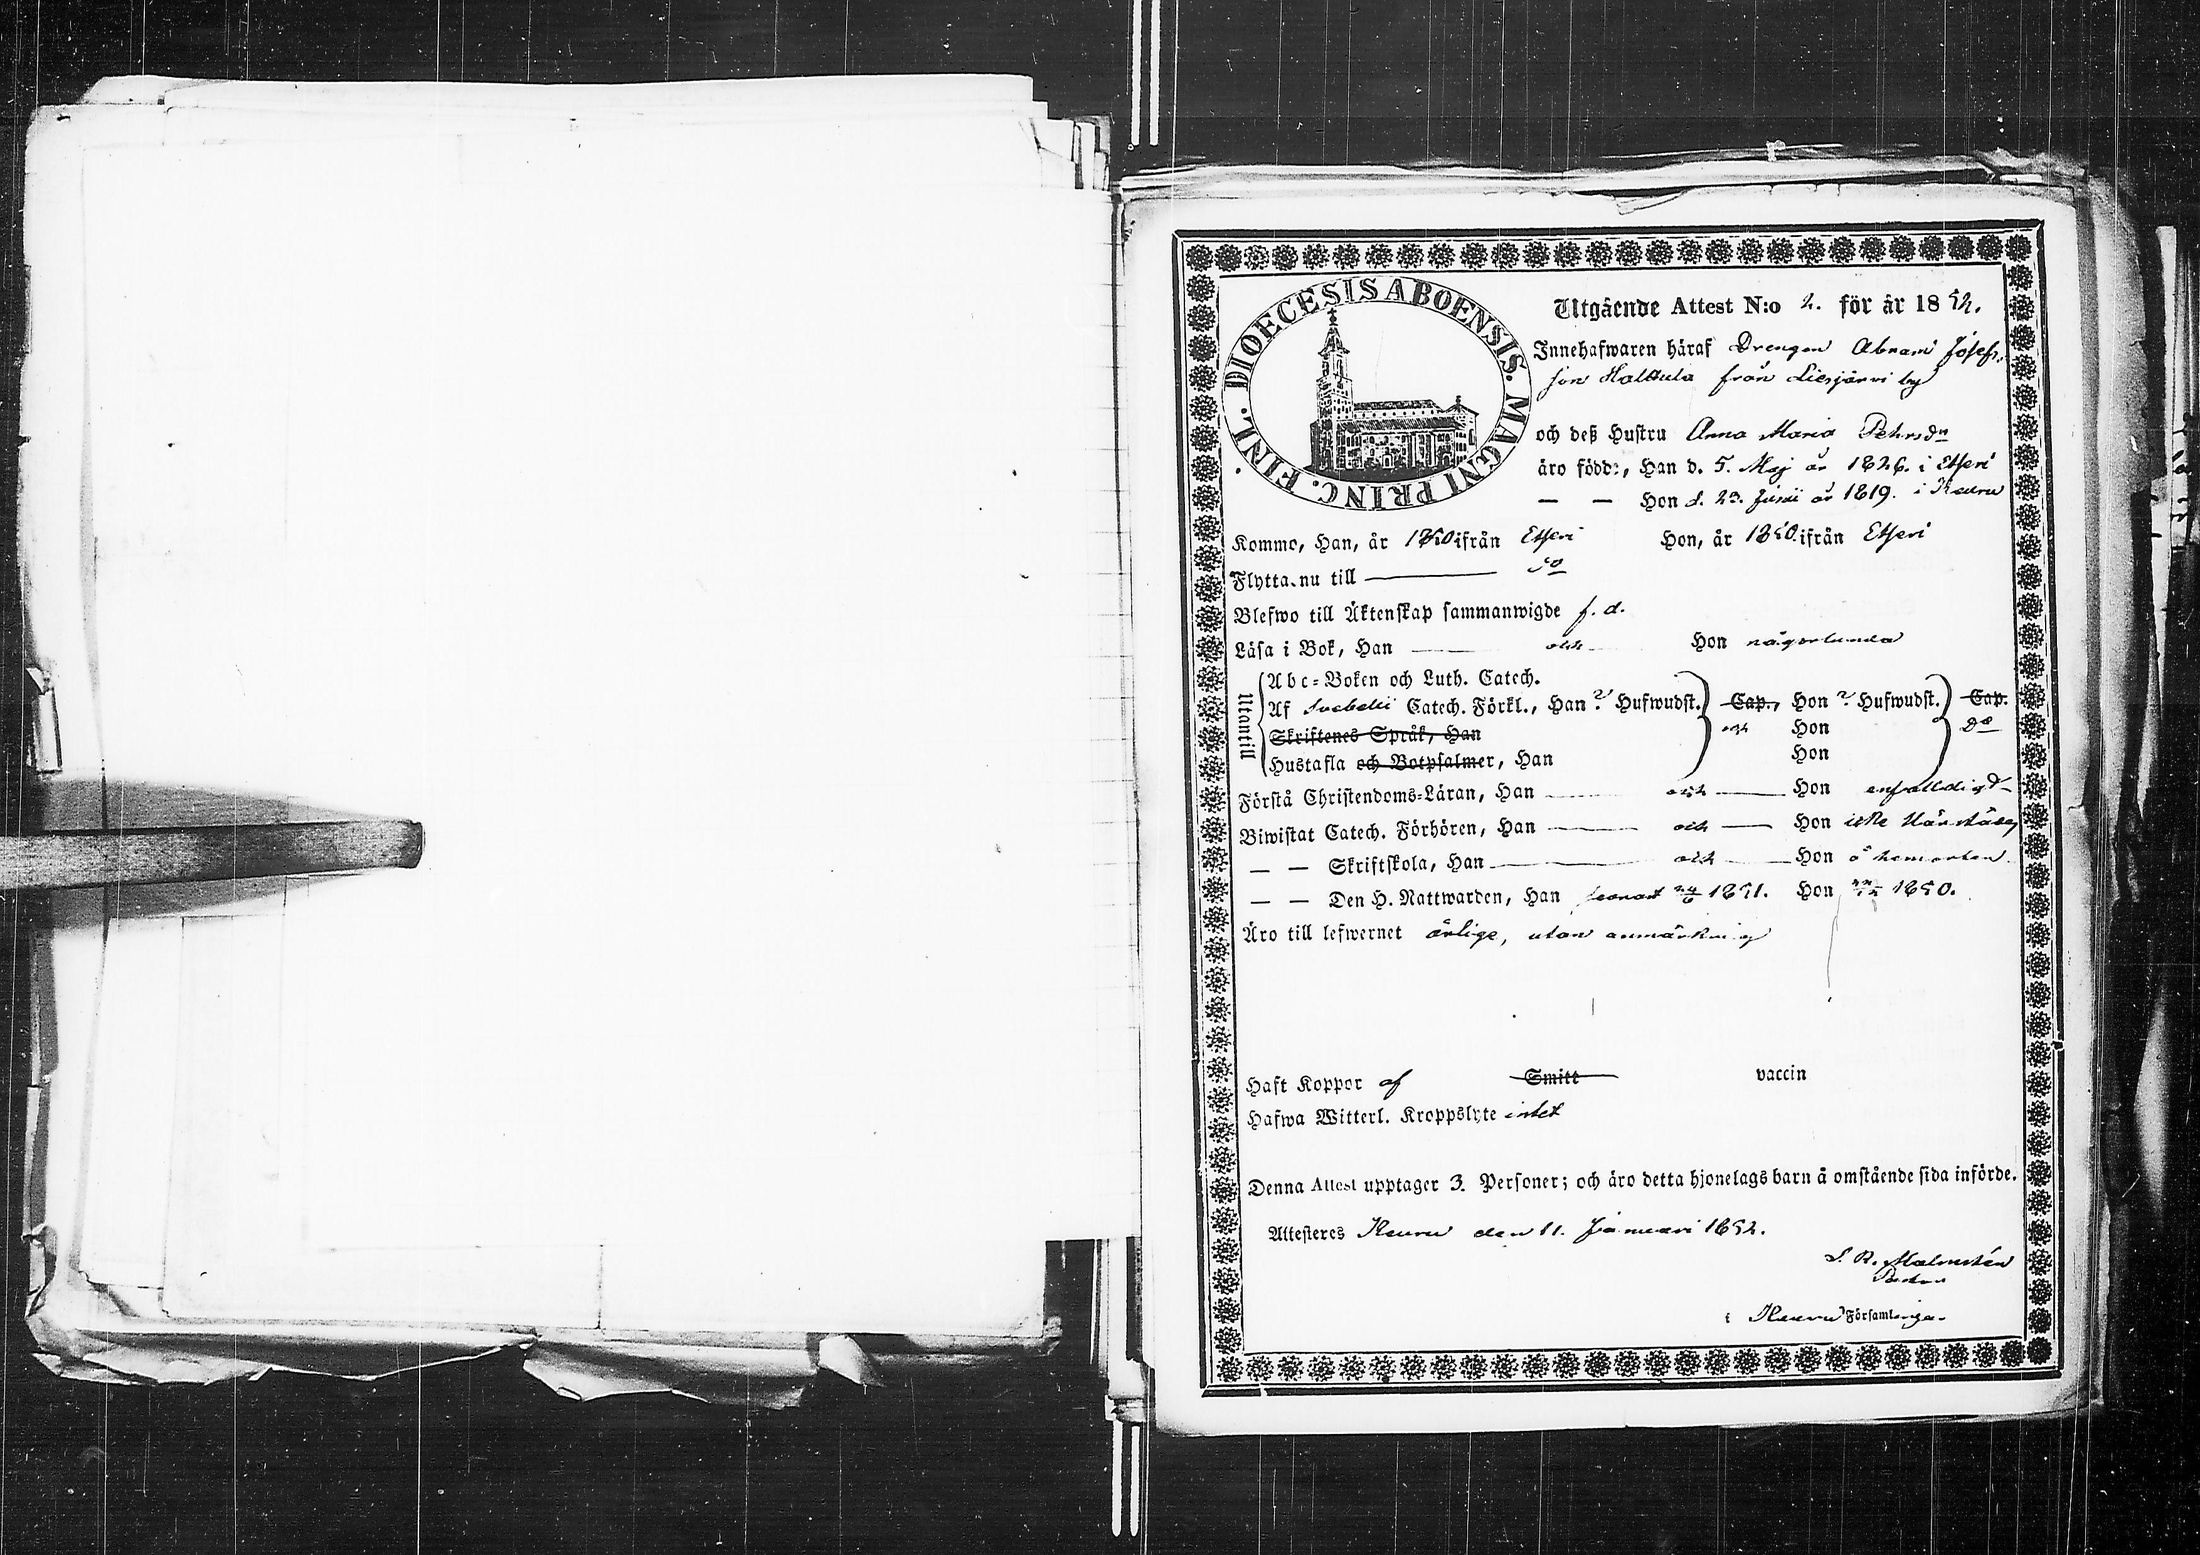 DIOECESIS ABOENSIS. MAGNI PRINC. FINL.
Utgående Attest N:o 2. för år 1852.
Innehafwaren häraf Drengen Abram Josefs
son Halkula från Liesjärvi by
och deß Hustru Anna Maria Pehrsdr
äro född:, Han d. 5. Maj år 1826. i Etseri
— — Hon d. 23. Junii år 1819. i Keuru
Kommo, Han, år 1850 ifrån Etseri Hon, år 1850 ifrån Etseri
Flytta nu till — do
Blefwo till Äktenskap sammanwigde f. d.
Läsa i Bok, Han — och Hon någorlunda
Utantill
Abc-Boken och Luth. Catech.
Af Svebelii Catech. Förkl., Han 2 Hufwudst. Cap., Hon 2 Hufwudst. Cap.
Skriftenes Språk, Han och Hon do
Hustafla och Botpsalmer, Han Hon
Förstå Christendoms-Läran, Han — och — Hon enfaldigt
Biwistat Catech. Förhören, Han — och — Hon icke härstädes
— — Skriftskola, Han — och — Hon å hemorten
— — Den H. Nattwarden, Han senast 24/6 1851. Hon 1850.
Äro till lefwernet ärlige, utan anmärkning
Haft Koppor af Smitt vaccin
Hafwa Witterl. Kroppslyte intet
Denna Attest upptager 3. Personer; och äro detta hjonelags barn å omstående sida införde.
Attesteres Keuru den 11. Januari 1852.
S. R. Malmstén
Pastor
i Keuru Församlingar